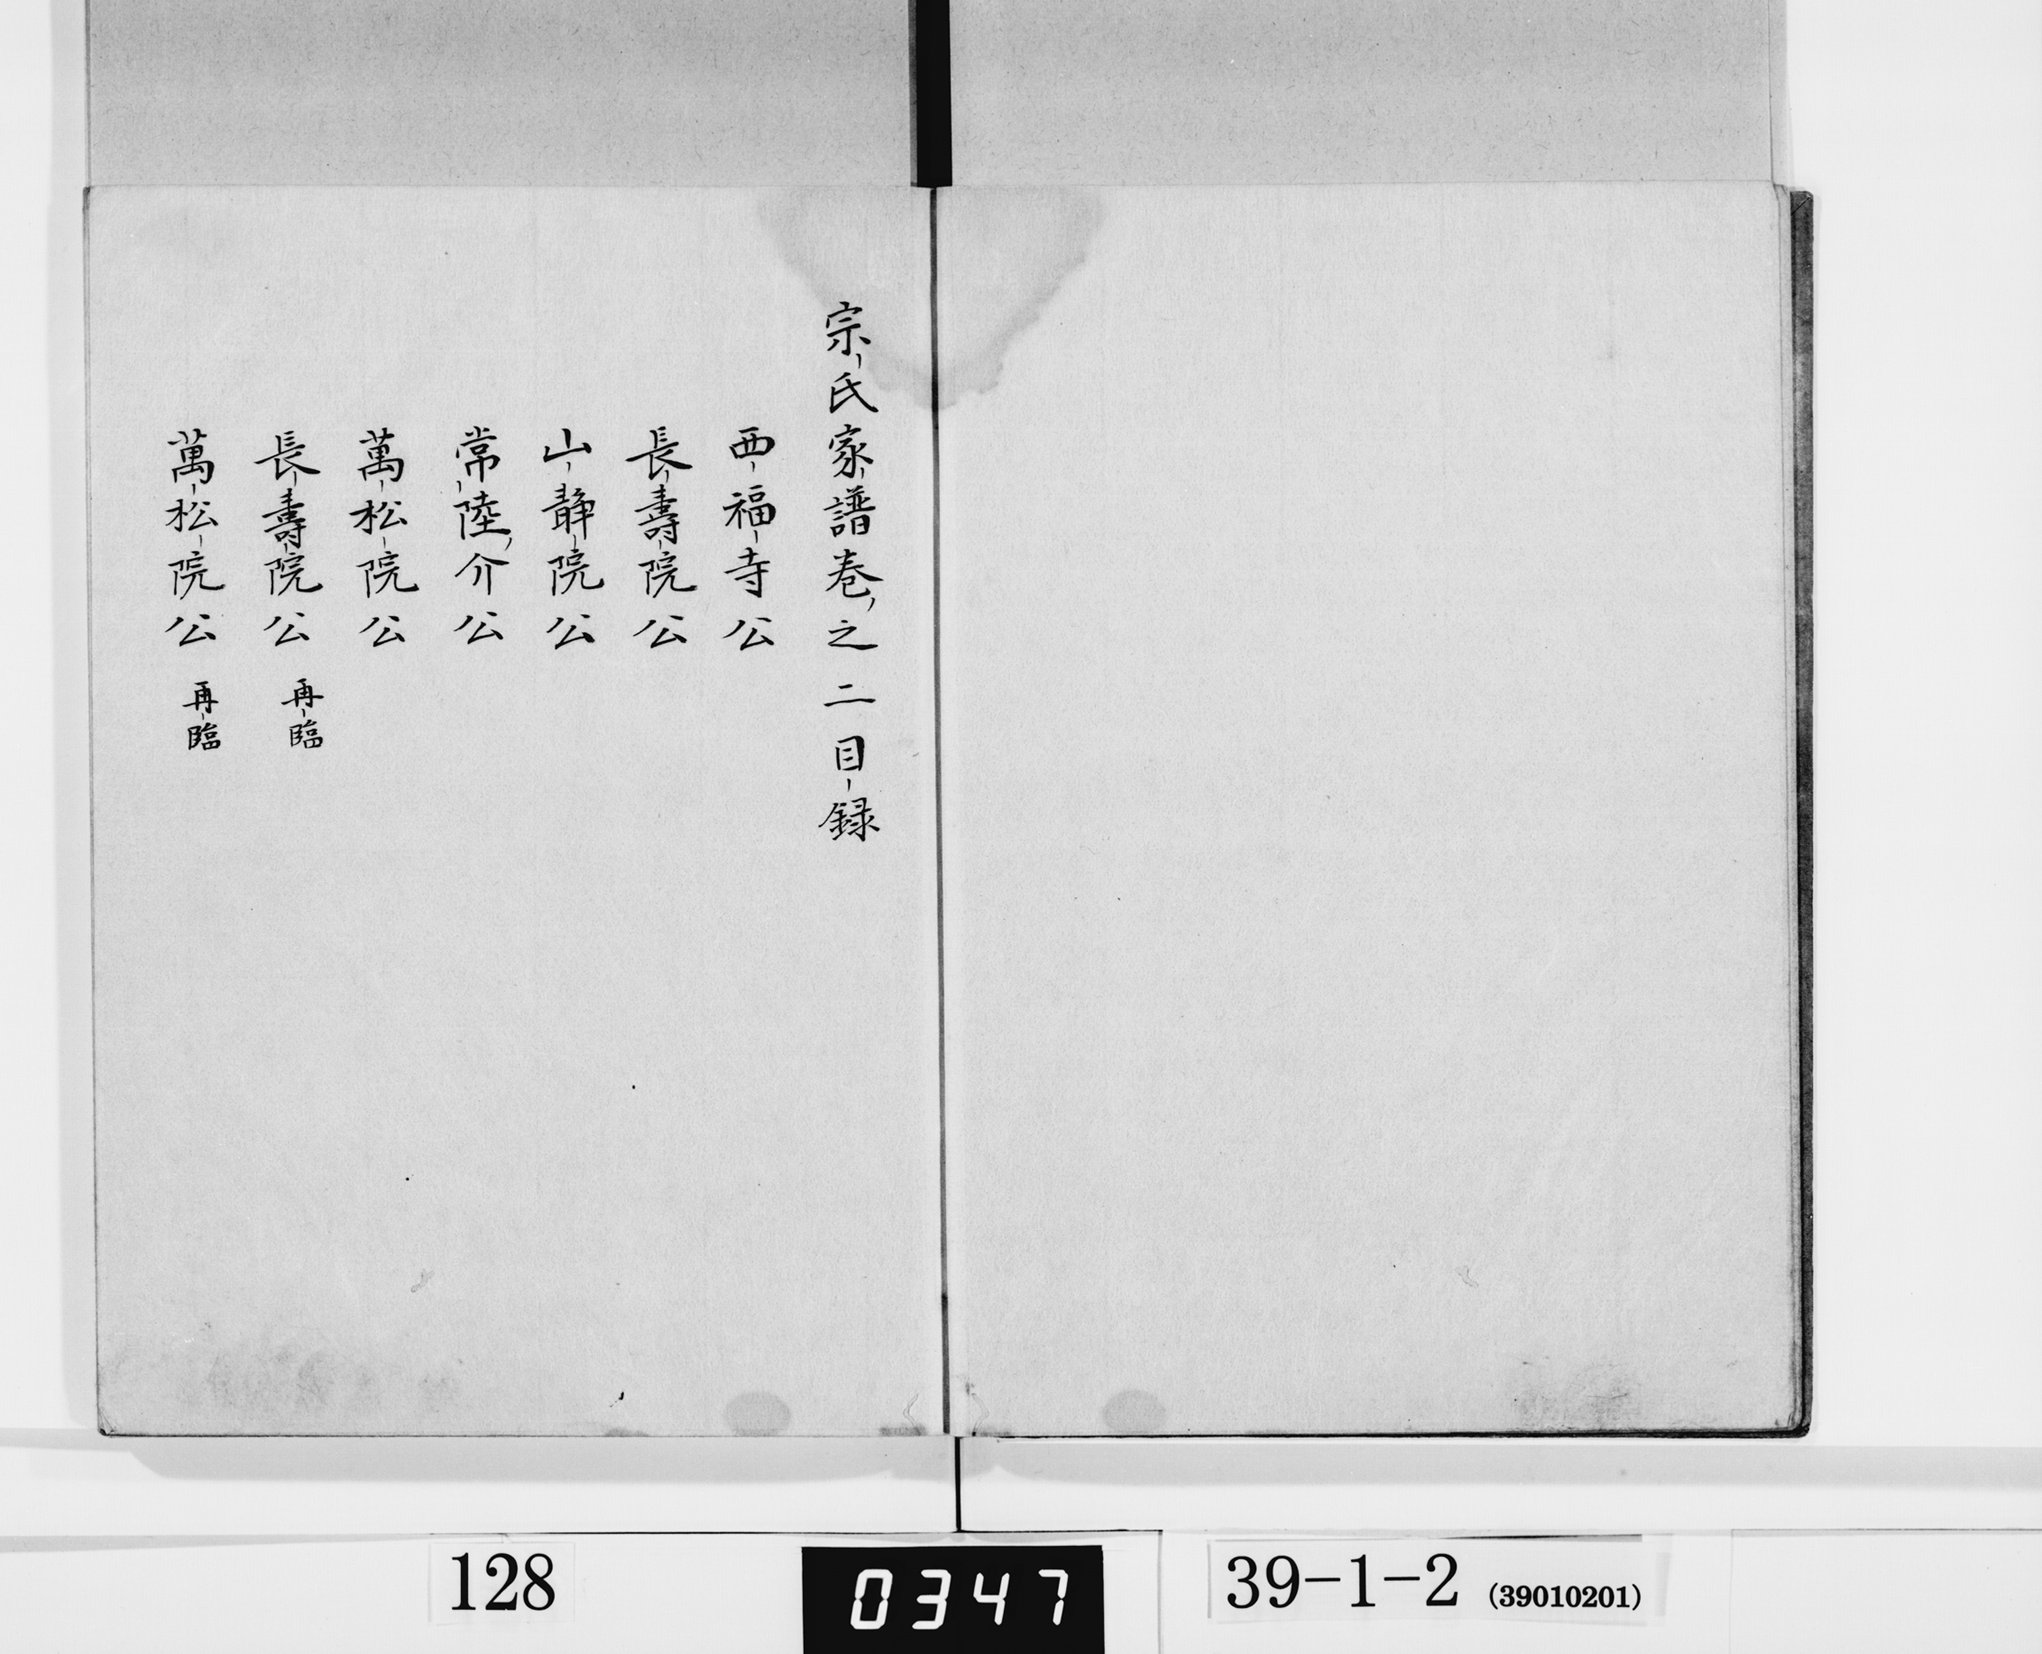 宗氏家譜巻之二目録
西福寺公
長壽院公
山靜院公
常陸介公
萬松院公
長壽院公 再臨
萬松院公 再臨
128
0347
39-1-2 (39010201)